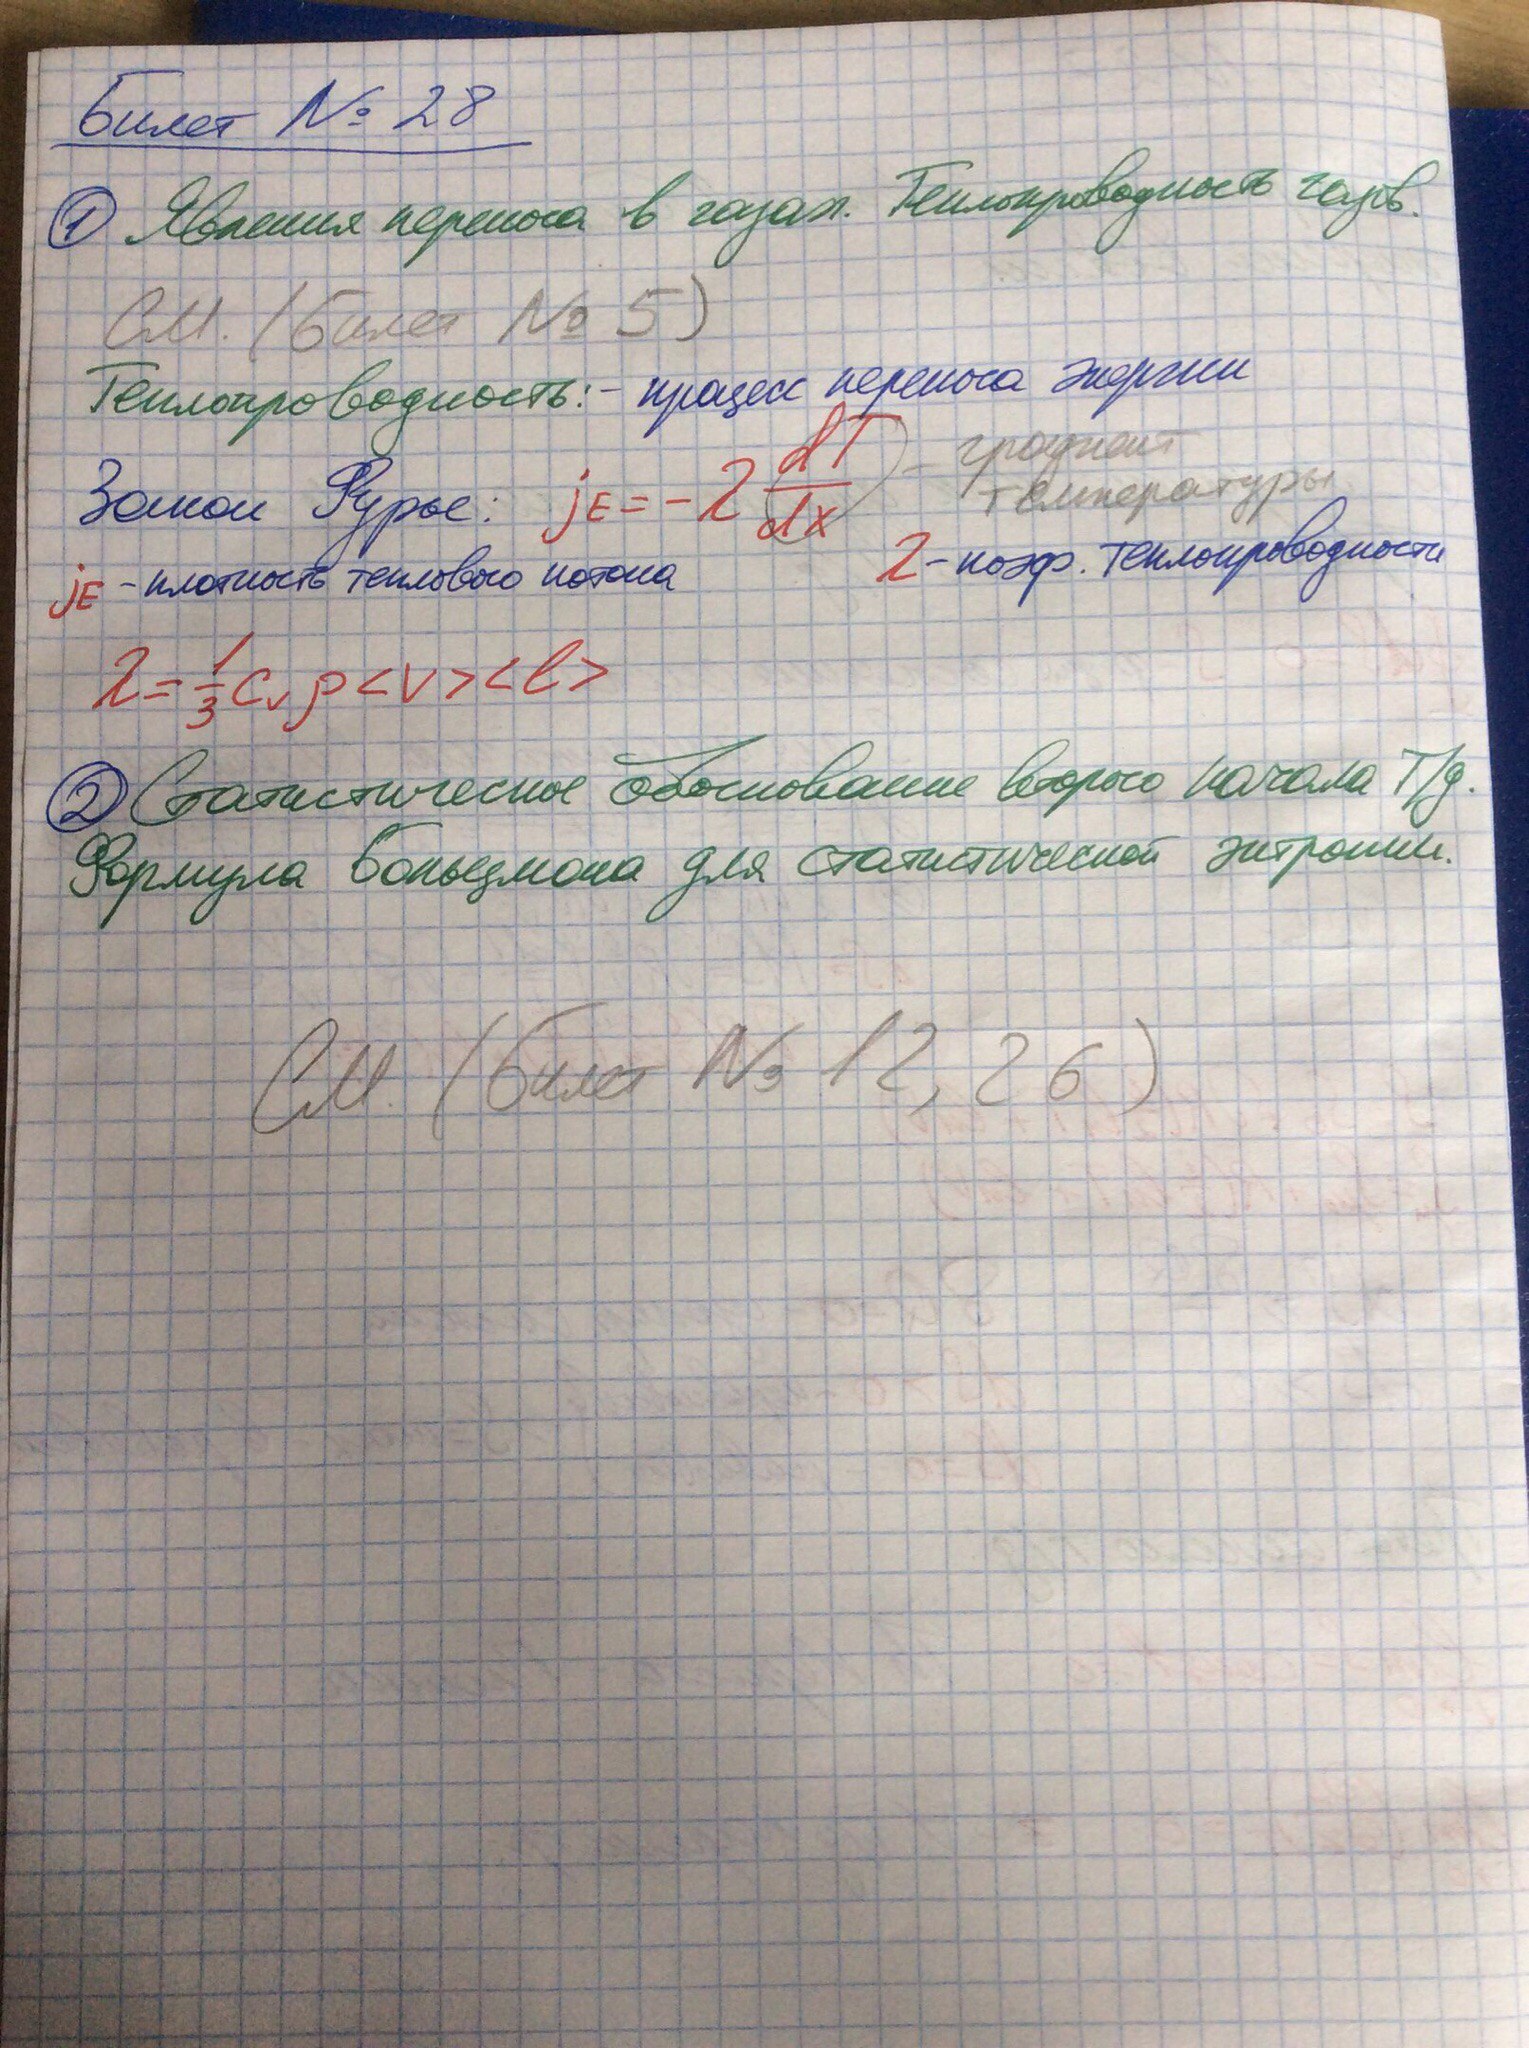 Билет № 28
① Явления переноса в газах. Теплопроводность газов.
См. (Билет № 5)
Теплопроводность: - процесс переноса энергии
Закон Фурье: jE = -λ dT/dx - градиент температуры
jE - плотность теплового потока λ - коэф. теплопроводности
λ = 1/3 Cv ρ <v> <l>
② Статистическое обоснование второго начала Т/д.
Формула Больцмана для статистической энтропии.
См. (Билет № 12, 26)